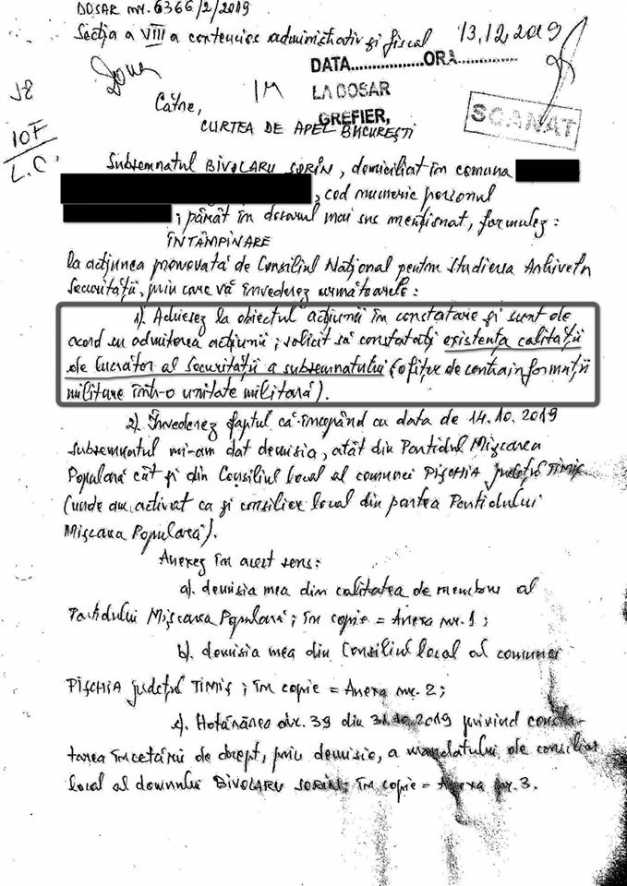 DOSAR nr. 6366/2/2019
Secția a VIII a contencios administrativ și fiscal
13.12.2019
DATA...............ORA...............
LA DOSAR
GREFIER,
SCANAT
Către,
CURTEA DE APEL BUCUREȘTI
Subsemnatul BIVOLARU SORIN, domiciliat în comuna
, cod numeric personal
; pârât în dosarul mai sus menționat, formulez:
ÎNTÂMPINARE
la acțiunea promovată de Consiliul Național pentru Studierea Arhivelor
Securității, prin care vă învederez următoarele:
1). Achiesez la obiectul acțiunii în constatare și sunt de
acord cu admiterea acțiunii; solicit să constatați existența calității
de lucrător al securității a subsemnatului (ofițer de contrainformații
militare într-o unitate militară).
2). Învederez faptul că începând cu data de 14.10.2019
subsemnatul mi-am dat demisia, atât din Partidul Mișcarea
Populară cât și din Consiliul local al comunei PIȘCHIA județul TIMIȘ
(unde am activat ca și consilier local din partea Partidului
Mișcarea Populară).
Anexez în acest sens:
a). demisia mea din calitatea de membru al
Partidului Mișcarea Populară; în copie = Anexa nr. 1;
b). demisia mea din Consiliul local al comunei
PIȘCHIA județul TIMIȘ; în copie = Anexa nr. 2;
c). Hotărârea nr. 39 din 31.10.2019 privind consta-
tarea încetării de drept, prin demisie, a mandatului de consilier
local al domnului BIVOLARU SORIN; în copie = Anexa nr. 3.